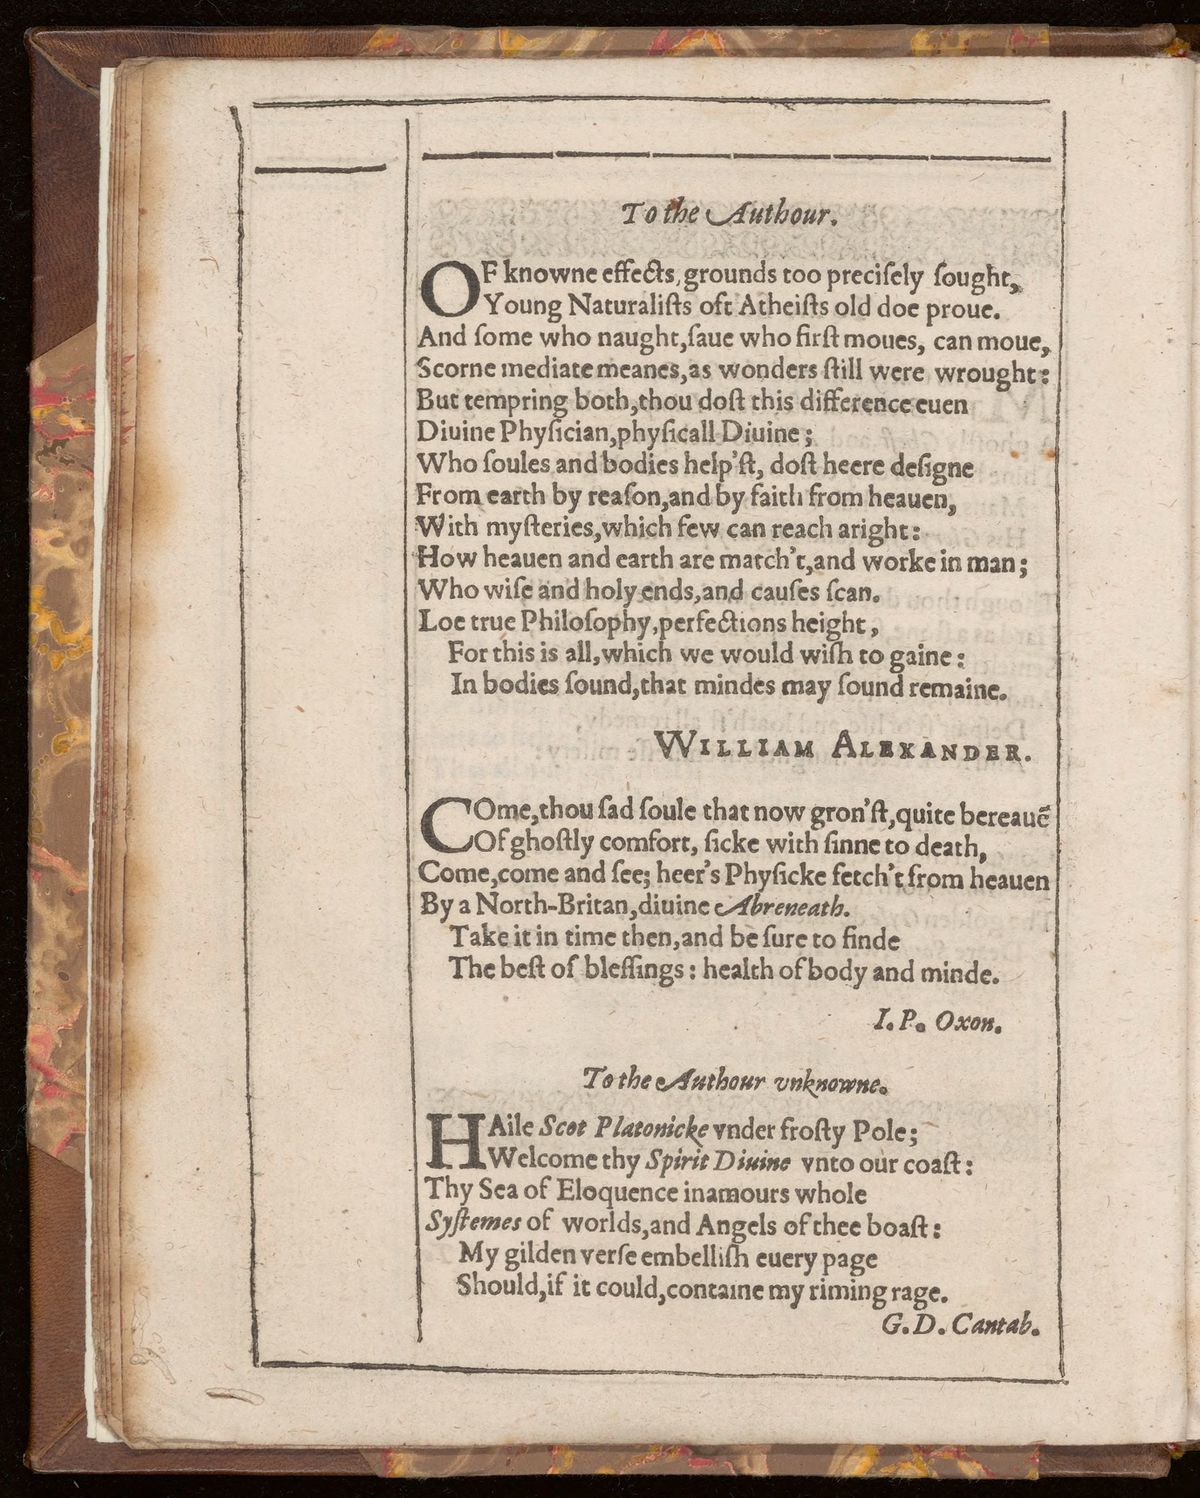 To the Authour.
OF knowne effects, grounds too preciſely ſought,
Young Naturaliſts oft Atheiſts old doe proue.
And ſome who naught, ſaue who firſt moues, can moue,
Scorne mediate meanes, as wonders ſtill were wrought:
But tempring both, thou doſt this difference euen
Diuine Phyſician, phyſicall Diuine;
Who ſoules and bodies help'ſt, doſt heere deſigne
From earth by reaſon, and by faith from heauen,
With myſteries, which few can reach aright:
How heauen and earth are match't, and worke in man;
Who wiſe and holy ends, and cauſes ſcan.
Loe true Philoſophy, perfections height,
For this is all, which we would wiſh to gaine:
In bodies ſound, that mindes may ſound remaine.
WILLIAM ALEXANDER.
COme, thou ſad ſoule that now gron'ſt, quite bereauẽ
Of ghoſtly comfort, ſicke with ſinne to death,
Come, come and ſee; heer's Phyſicke fetch't from heauen
By a North-Britan, diuine Abreneath.
Take it in time then, and be ſure to finde
The beſt of bleſſings: health of body and minde.
I. P. Oxon.
To the Authour vnknowne.
HAile Scot Platonicke vnder froſty Pole;
Welcome thy Spirit Diuine vnto our coaſt:
Thy Sea of Eloquence inamours whole
Syſtemes of worlds, and Angels of thee boaſt:
My gilden verſe embelliſh euery page
Should, if it could, containe my riming rage.
G. D. Cantab.